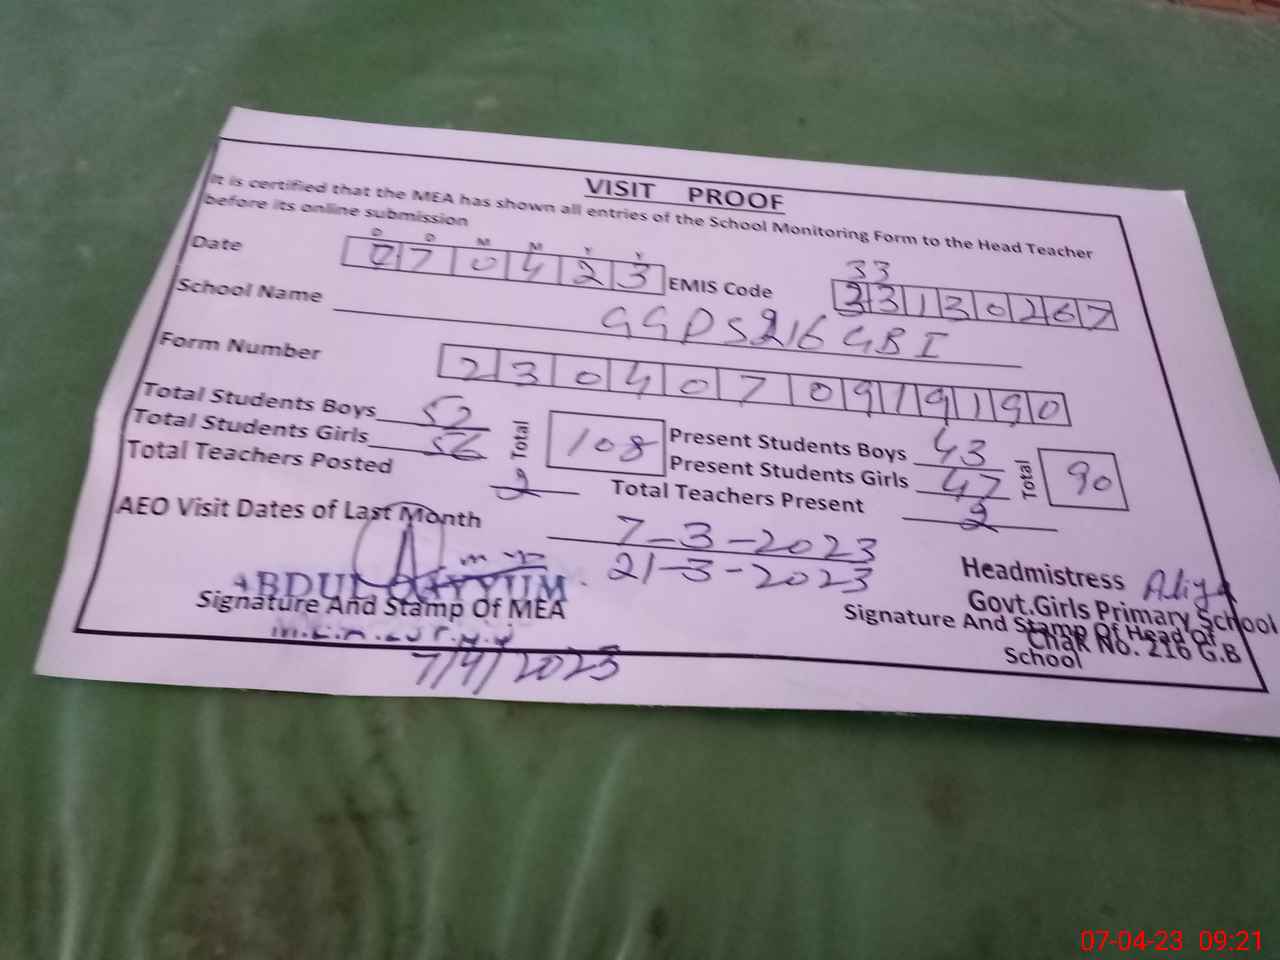 VISIT PROOF
It is certified that the MEA has shown all entries of the School Monitoring Form to the Head Teacher
before its online submission
D D M M Y Y
Date 070423 EMIS Code 33
33130267
School Name GGPS 216 GB I
Form Number 2304070919190
Total Students Boys 52 Total 108 Present Students Boys 43 Total 90
Total Students Girls 56 Present Students Girls 47
Total Teachers Posted 2 Total Teachers Present 2
AEO Visit Dates of Last Month 7-3-2023
21-3-2023
ABDUL QAYYUM
Signature And Stamp Of MEA
7/4/2023
Headmistress Aliya
Govt.Girls Primary School
Chak No. 216 G.B
Signature And Stamp Of Head Of
School
07-04-23 09:21